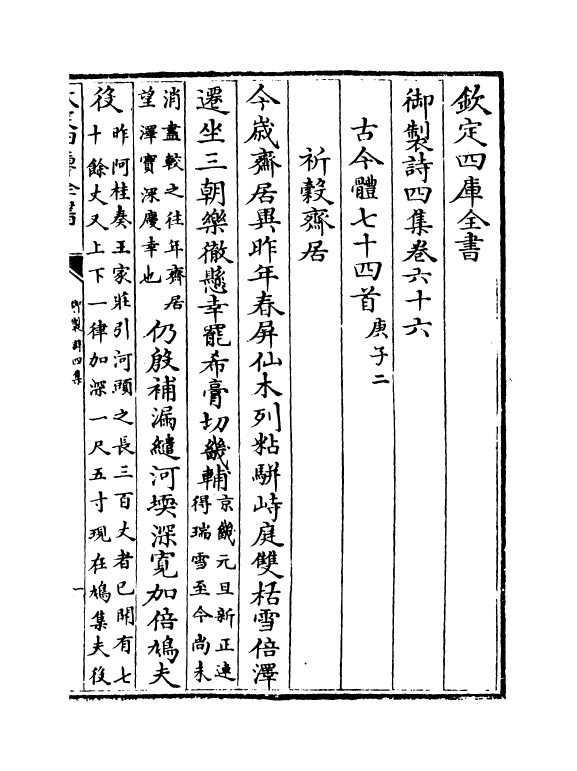 欽定四庫全書
御製詩四集卷六十六
古今體七十四首庚子二
祈穀齋居
今歲齋居異昨年春屏仙木列粘駢峙庭雙栝雪倍澤
遷坐三朝樂徹懸幸罷希膏切畿輔京畿元旦新正連
得瑞雪至今尚未
消盡較之往年齋居
望澤實深慶幸也仍殷補漏繾河堧深寛加倍鳩夫
役昨阿桂奏王家莊引河頭之長三百丈者已開有七
十餘丈又上下一律加深一尺五寸現在鳩集夫役
御製詩四集
一